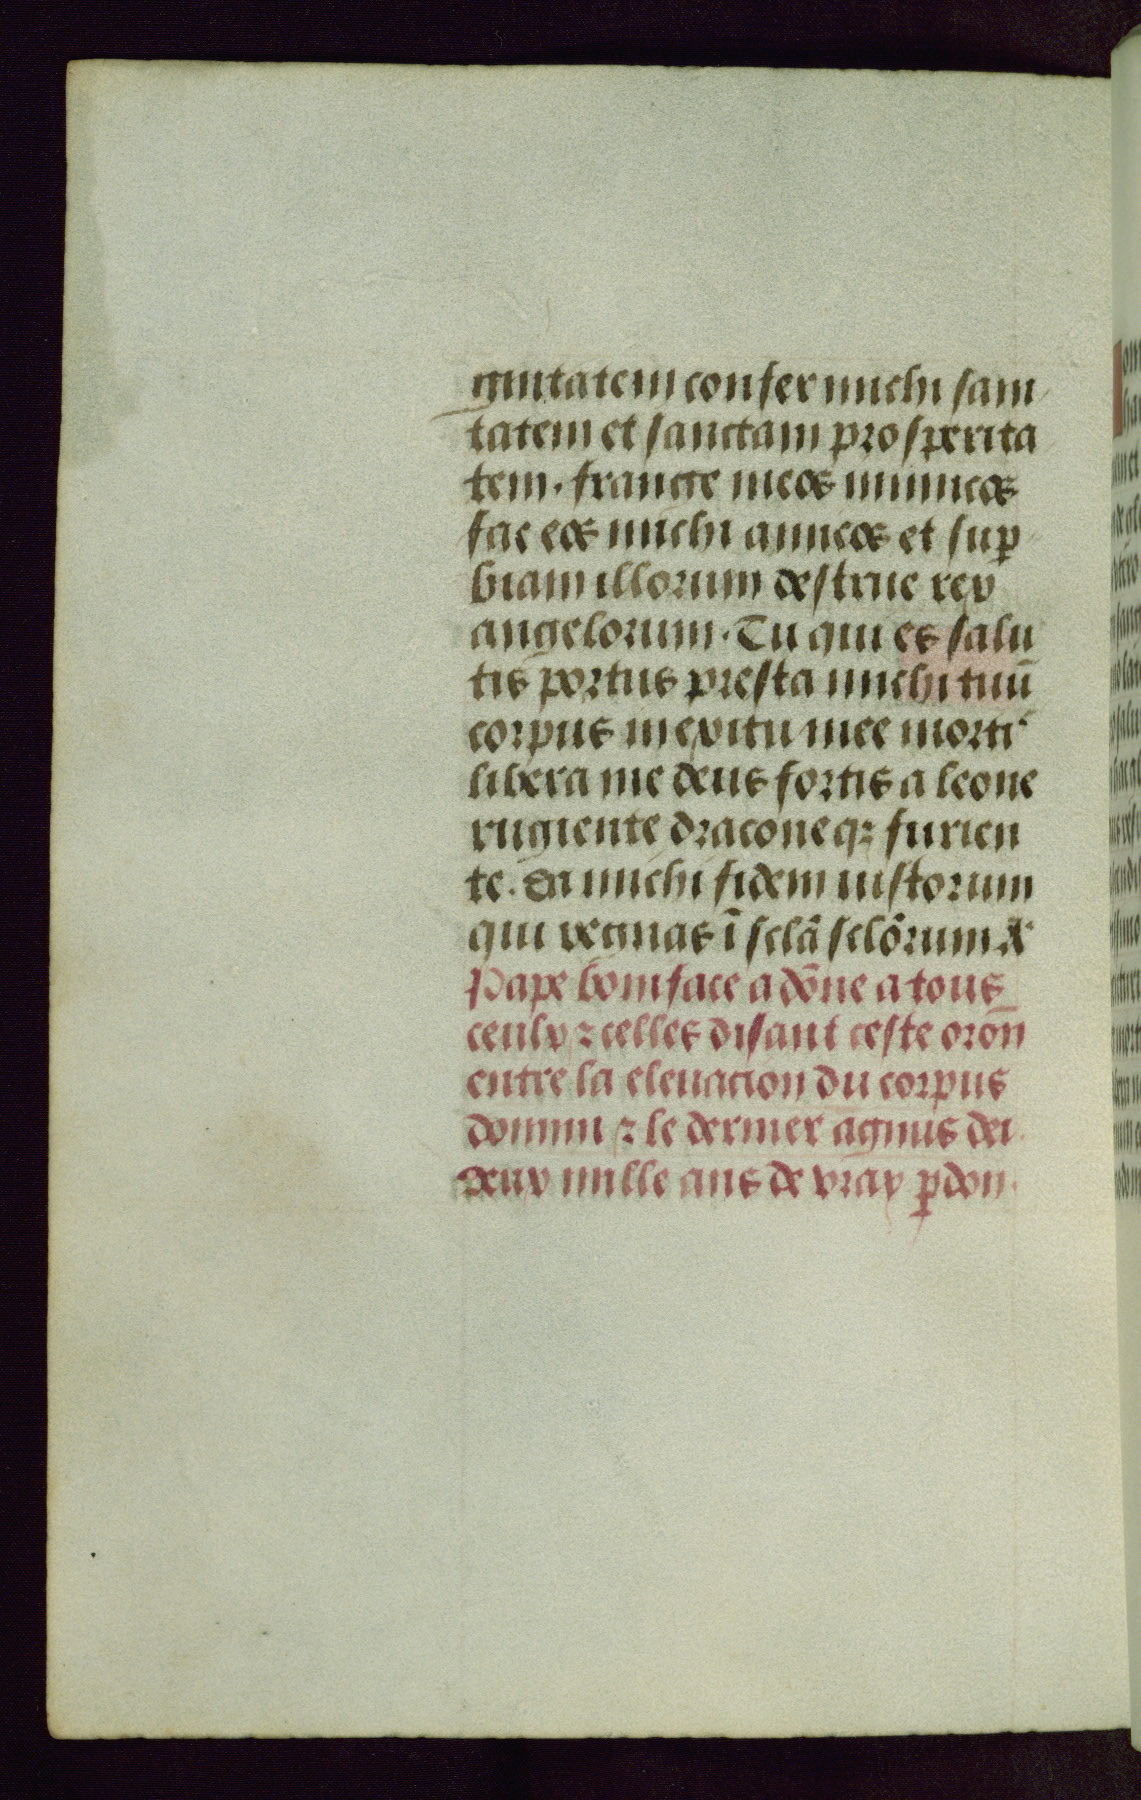 gnitatem confer michi sani
tatem et sanctam prosperita
tem. frange meos inimicos
fac eos michi amicos et sup̱
biam illorum destrue rex
angelorum. Tu qui es salu
tis portus presta michi tuū
corpus in exitu mee morti͛
libera me deus fortis a leone
rugiente draconeqꝫ furien
te. Da michi fidem iustorum
qui regnas ī sclā sclōrum A͛
Pape boniface a dōne a tous
ceulx ⁊ celles disant ceste orōn
entre la eleuacion du corpus
domini ⁊ le dernier agnus dei
deux mille ans de vray ꝑdon.